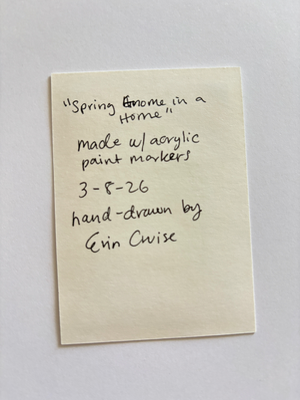 "Spring Gnome in a
Home"
made w/ acrylic
paint markers
3-8-26
hand-drawn by
Erin Cruise